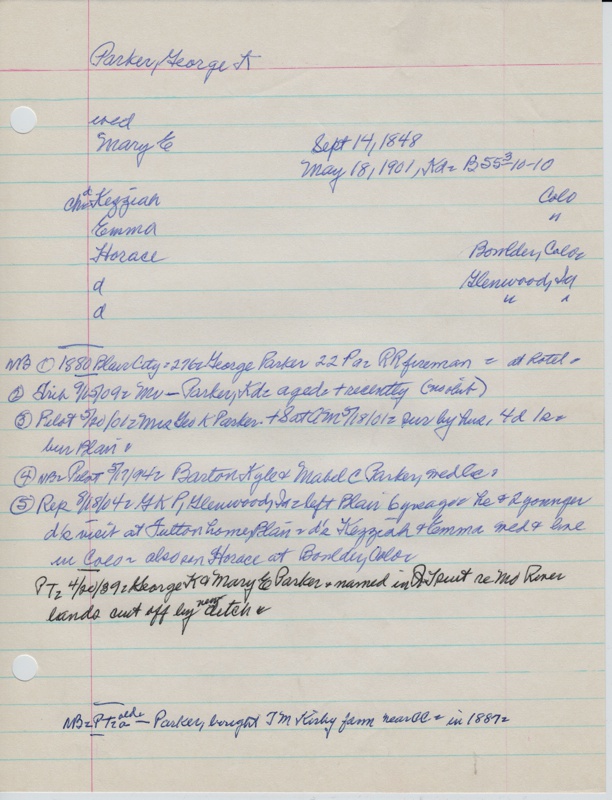 Parker, George K
wed
Mary E Sept 14, 1848
May 18, 1901, Kd= B 55-3-10-10
ch= Kezziah Colo
Emma "
Horace Boulder, Colo
d Glenwood, Ia
d " "
NB ① 1880 Blair City = 276= George Parker 22 Pa= RR fireman = at hotel =
② 9/15/09= Mr — Parker, Kd= aged + recently (no obit)
③ Pilot 5/20/01= Mrs Geo K Parker + Sat AM 5/18/01= sur by hus, 4 d 1s=
bur Blair
④ NB= Pilot 5/17/94= Barton Kyle & Mabel C Parker, med lic=
⑤ Rep 8/18/04= G K P, Glenwood, Ia= left Blair 6 yrs ago= he & 2 younger
d's visit at Sutton home, Blair= d's Kezziah & Emma wed & live
in Colo= also son Horace at Boulder, Colo
PT= 4/20/39= George K & Mary E Parker = named in suit re Mo River
lands cut off by new ditch
NB= PT= — Parker, bought J M Kirby farm near CC = in 1887=